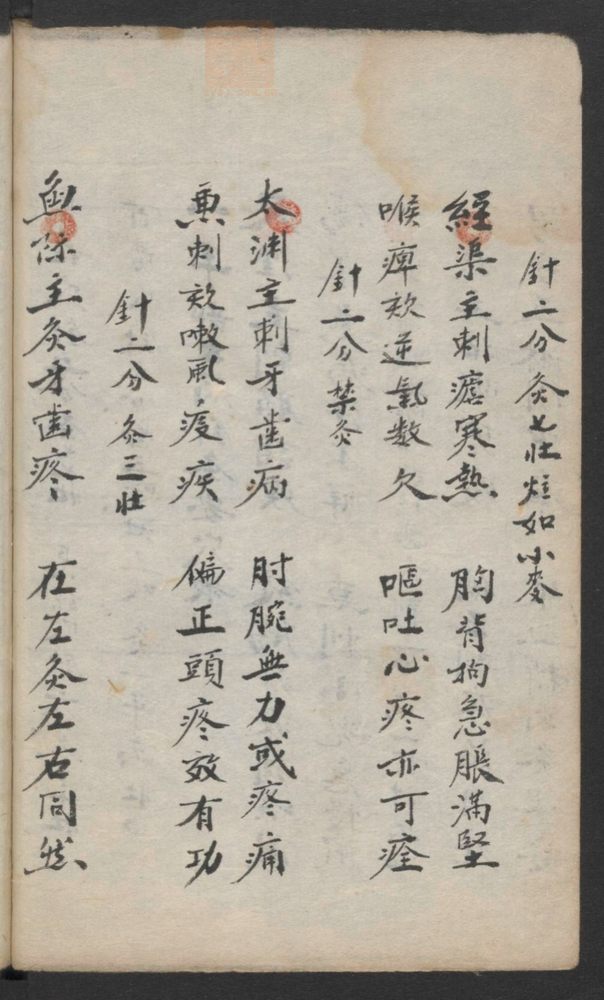 針二分灸七壯炷如小麥
經渠主刺瘧寒熱 胸背拘急脹滿堅
喉痺欬逆氣數欠 嘔吐心疼亦可痊
針二分禁灸
太渊主刺牙齒病 肘腕無力或疼痛
兼刺欬嗽風痰疾 偏正頭疼效有功
針二分灸三壯
魚际主灸牙齒疼 在左灸左右同然